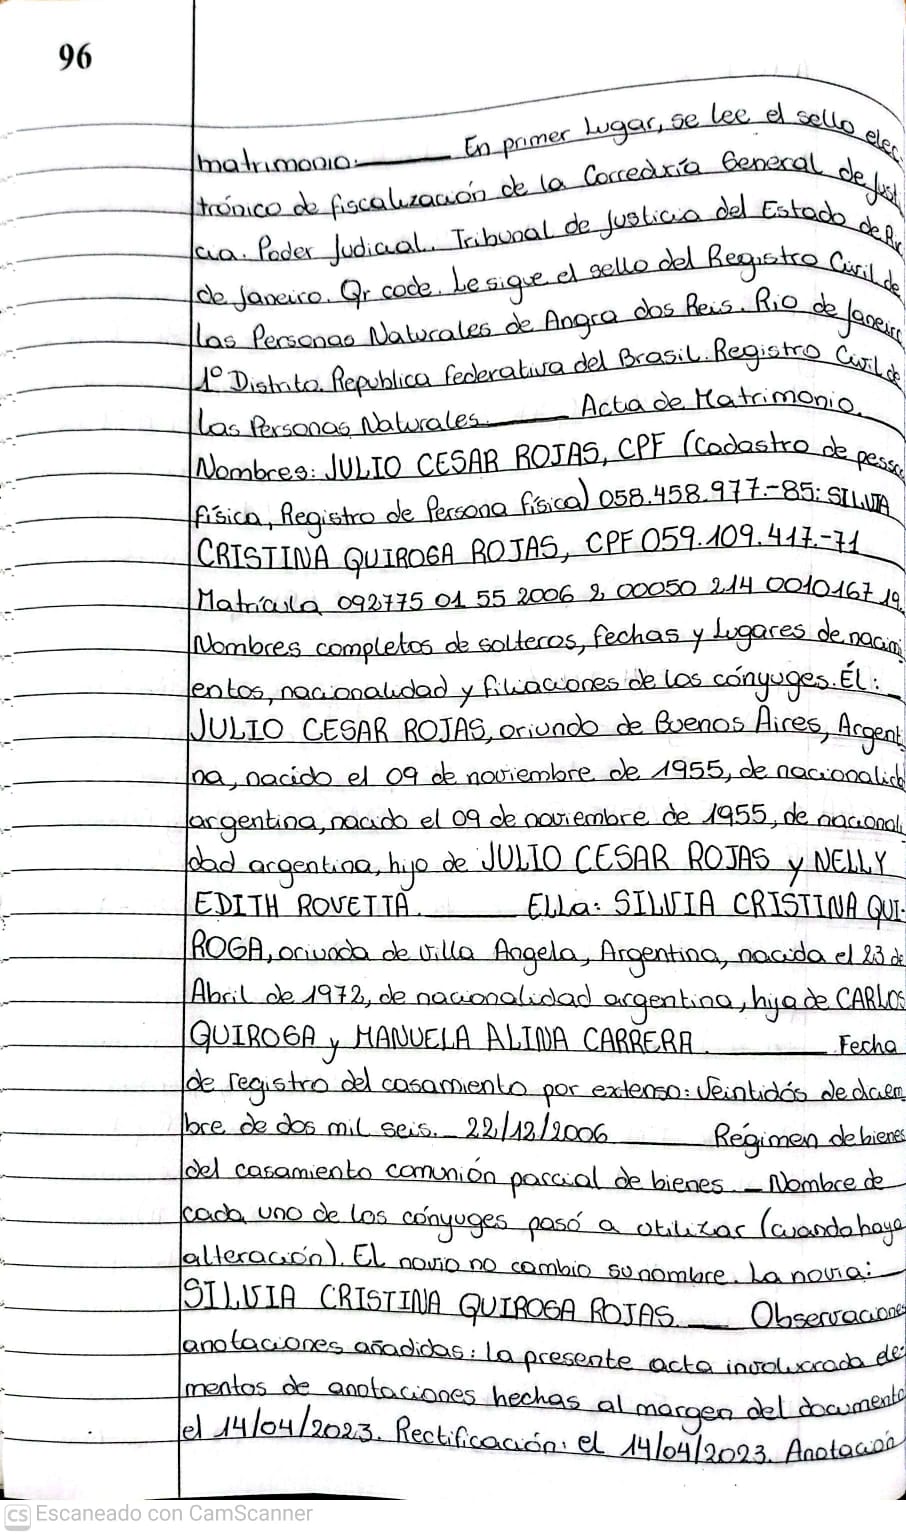 96
matrimonio. En primer lugar, se lee el sello elec-
trónico de fiscalización de la Correduría General de Justi
cia. Poder Judicial. Tribunal de Justicia del Estado de Rio
de Janeiro. Qr code. Le sigue el sello del Registro Civil de
las Personas Naturales de Angra dos Reis. Rio de Janeiro
1º Distrito. Republica federativa del Brasil. Registro Civil de
las Personas Naturales. Acta de Matrimonio.
Nombres: JULIO CESAR ROJAS, CPF (Cadastro de pessoa
física, Registro de Persona física) 058.458.977.-85: SILVIA
CRISTINA QUIROGA ROJAS, CPF 059.109.417.-71
Matrícula 092775 01 55 2006 2 00050 214 0010167 19.
Nombres completos de solteros, fechas y lugares de nacimi
entos, nacionalidad y filiaciones de los cónyuges. Él:
JULIO CESAR ROJAS, oriundo de Buenos Aires, Argenti
na, nacido el 09 de noviembre de 1955, de nacionalid
argentina, nacido el 09 de noviembre de 1955, de nacionali
dad argentina, hijo de JULIO CESAR ROJAS y NELLY
EDITH ROVETTA. Ella: SILVIA CRISTINA QUI-
ROGA, oriunda de villa Angela, Argentina, nacida el 23 de
Abril de 1972, de nacionalidad argentina, hija de CARLOS
QUIROGA y MANUELA ALINA CARRERA. Fecha
de registro del casamiento por extenso: Veintidós de diciem
bre de dos mil seis. 22/12/2006 Régimen de bienes
del casamiento comunión parcial de bienes. - Nombre de
cada uno de los cónyuges pasó a utilizar (cuando haya
alteración). El novio no cambio su nombre. La novia:
SILVIA CRISTINA QUIROGA ROJAS Observaciones
anotaciones añadidas: la presente acta involucrada de
mentos de anotaciones hechas al margen del documento
el 14/04/2023. Rectificación: el 14/04/2023. Anotación
CS Escaneado con CamScanner